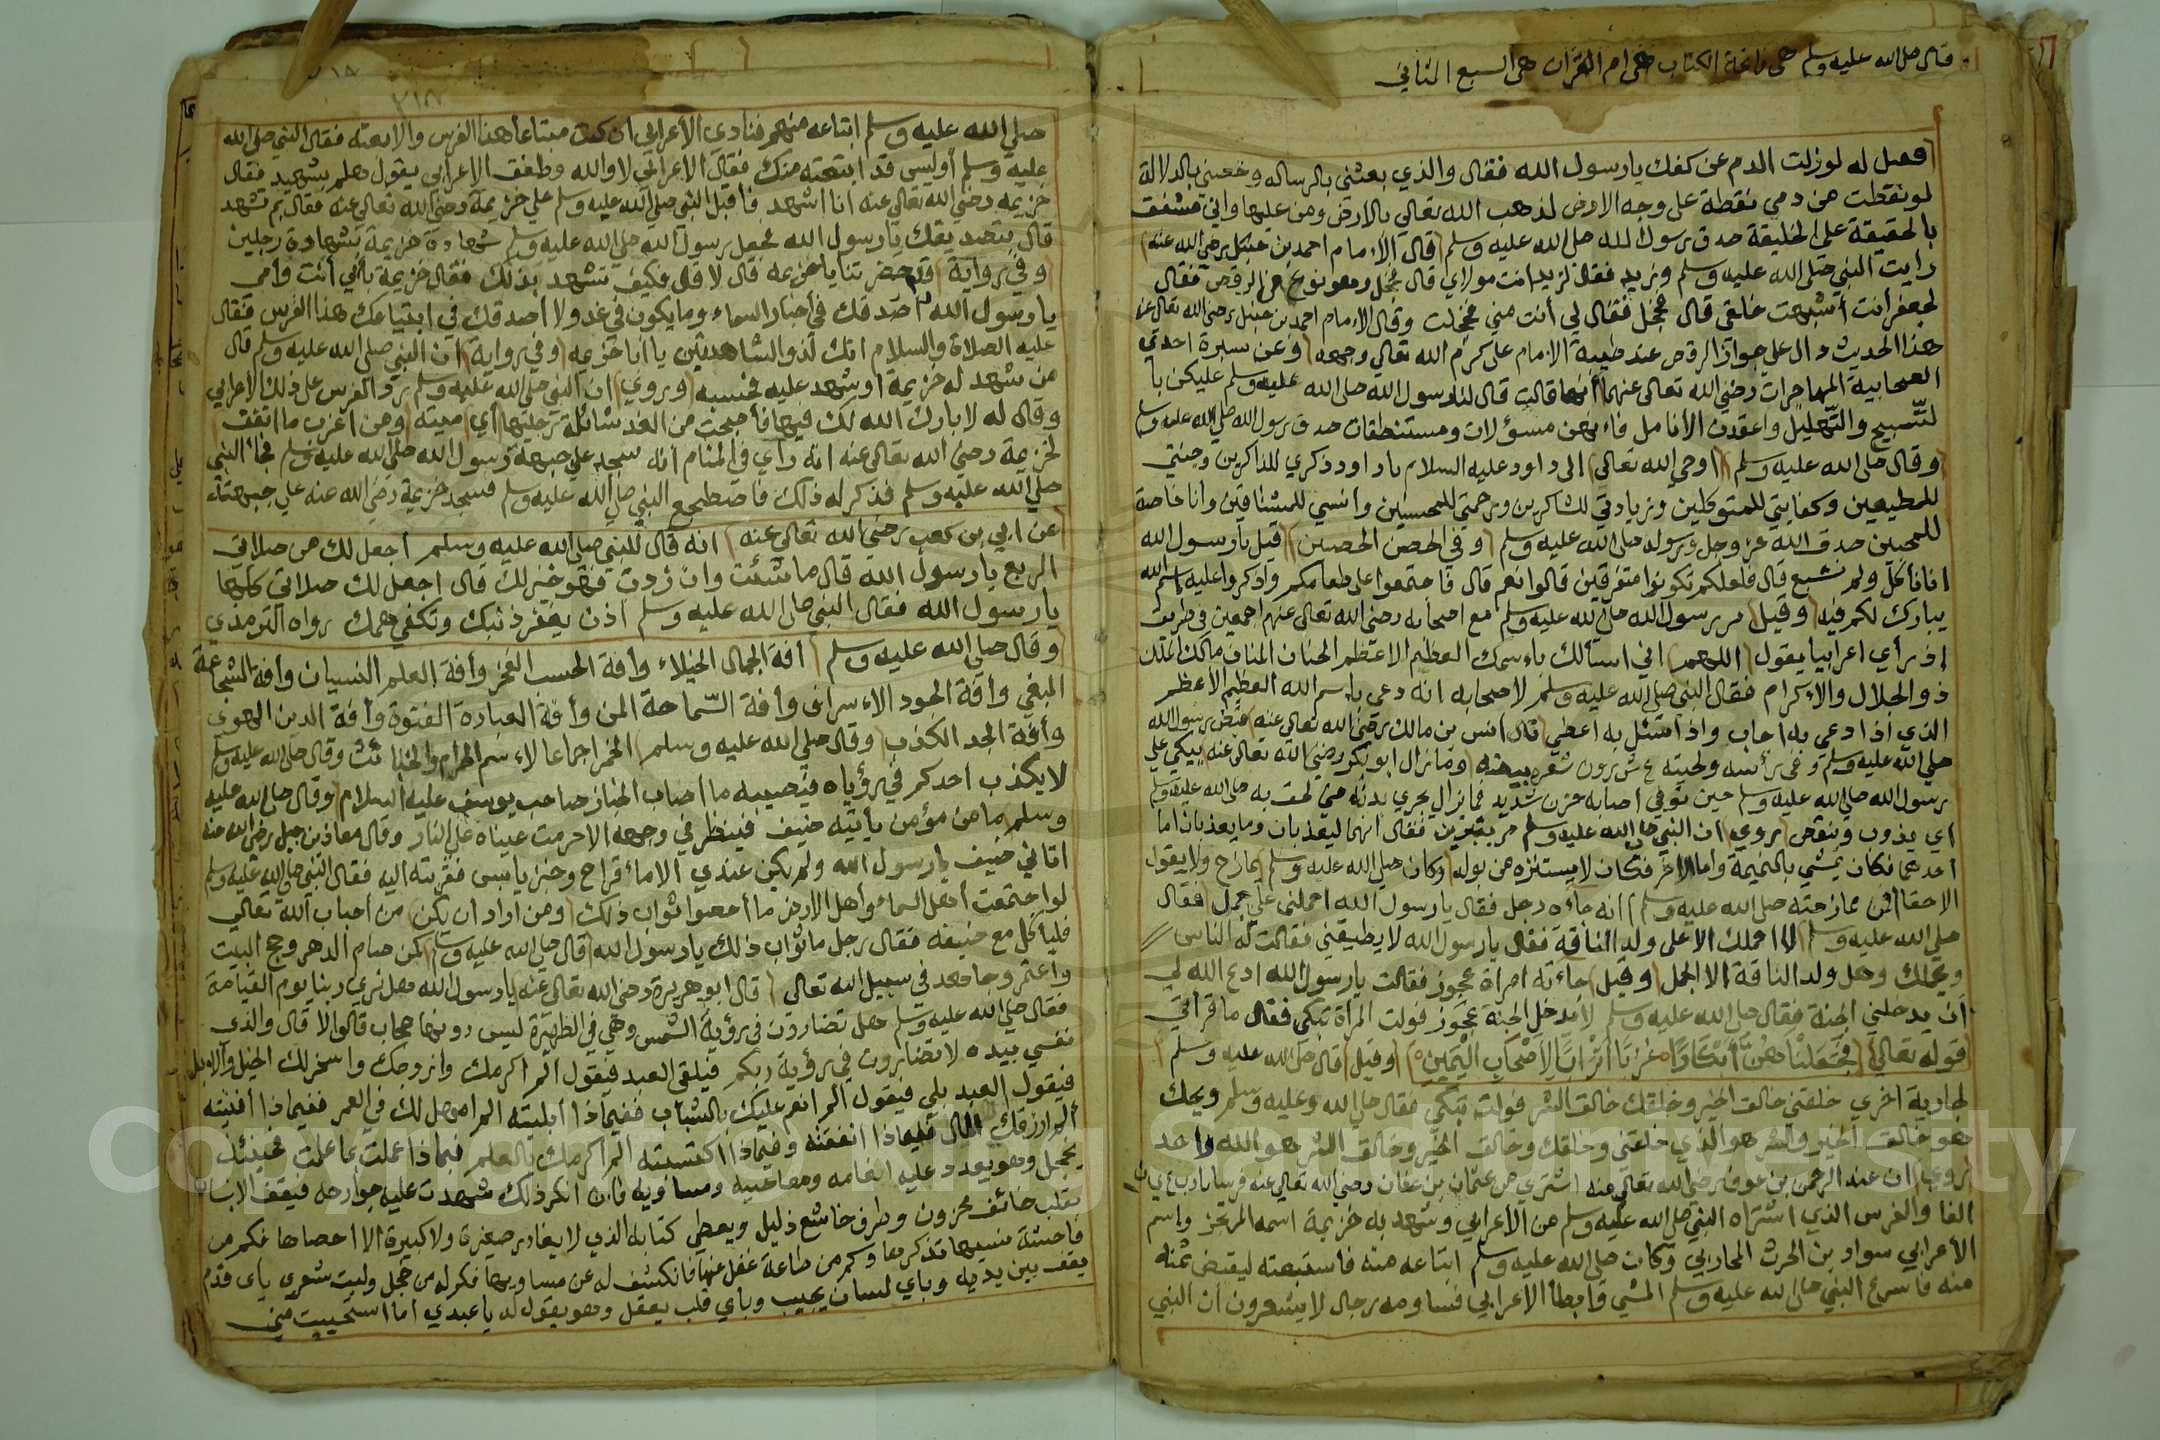 قال صلى الله عليه وسلم هي فاتحة الكتاب هي ام القرآن هي السبع المثاني
فصل له لوزلت الدم عن كفك يارسول الله فقال والذي بعثني بالرساله وخصني بالدلالة
لو نقطت من دمي نقطة على وجه الارض لذهب الله تعالى بالارض ومن عليها واني مشفق
بالحقيقة على الخليقة صدق رسول الله صلى الله عليه وسلم قال الامام احمد بن حنبل رضي الله عنه
رايت النبي صلى الله عليه وسلم وزيد فقال لزيد انت مولاي قال فحجل وهو نوع من الرقص فقال
لجعفر أنت أشبهت خلقي قال فحجل فقال لي أنت مني فحجلت وقال الامام احمد بن حنبل رضي الله تعالى عنه
هذا الحديث دال على جواز الرقص عند طيبة الامام على كرم الله تعالى وجهه وعن سبرة احدى
الصحابية المهاجرات رضي الله تعالى عنهما أنها قالت قال لنا رسول الله صلى الله عليه وسلم عليكن با
لتسبيح والتهليل واعقدن الأنامل فاءنهن مسؤلات ومستنطقات صدق رسول الله صلى الله عليه وسلم
وقال صلى الله عليه وسلم اوحي الله تعالى الى داود عليه السلام ياداود ذكري للذاكرين وجنتي
للمطيعين وكفايتي للمتوكلين وزيادتي للشاكرين ورحمتي للمحسنين وانسي للمشتاقين وأنا خاصة
للمحبين صدق الله عز وجل ورسوله صلى الله عليه وسلم وفي الحصن الحصين قيل يارسول الله
انا نأكل ولم نشبع قال فلعلكم تكونوا متفرقين قالوا نعم قال فاجتمعوا على طعامكم واذكروا عليه اسم الله
يبارك لكم فيه وقيل مر رسول الله صلى الله عليه وسلم مع اصحابه رضي الله تعالى عنهم اجمعين في طريق
إذ رأى اعرابيا يقول اللهم اني اسألك باءسمك العظيم الاعظم الحنان المنان مالك الملك
ذوالجلال والاءكرام فقال النبي صلى الله عليه وسلم لاصحابه انه دعى باسم الله العظيم الأعظم
الذي اذا دعى به اجاب واذا سئل به اعطي قال انس بن مالك رضي الله تعالى عنه قبض رسول الله
صلى الله عليه وسلم وفي رأسه ولحيته عشرون شعرة بيضة وما زال ابو بكر رضي الله تعالى عنه يبكي على
رسول الله صلى الله عليه وسلم حين توفي اصابه حزن شديد فما يزال يحري بدنه حتى لحق به صلى الله عليه وسلم
اي يذوب وينقص روي ان النبي صلى الله عليه وسلم مر بقبرين فقال انهما ليعذبان وما يعذبان اما
أحدهما فكان يمشي بالنميمة واما الآخر فكان لا يستنزه من بوله وكان صلى الله عليه وسلم يمازح ولا يقول
الاحقا فمن ممازحته صلى الله عليه وسلم انه جاءه رجل فقال يارسول الله احملني على جمل فقال
صلى الله عليه وسلم لا احملك الا على ولد الناقة فقال يارسول الله لا يطيقني فقالت له الناس
ويحك وهل ولد الناقة الا الجمل وقيل جاءته امرأة عجوز فقالت يارسول الله ادع الله لي
أن يدخلني الجنة فقال صلى الله عليه وسلم لا يدخل الجنة عجوز فولت المرأة تبكي فقال ما قرأتي
قوله تعالى فجعلناهن أبكارا عربا أترابا لأصحاب اليمين وقيل قال صلى الله عليه وسلم
لجارية اخري خلقني خالق الخير وخلقك خالق الشر فولت تبكي فقال صلى الله وعليه وسلم ويحك
هو خالق الخير والشر هو الذي خلقني وخلقك وخالق الخير وخالق الشر هو الله واحد
روي ان عبد الرحمن بن عوف رضي الله تعالى عنه اشتري من عثمان بن عفان رضي الله تعالى عنه فرسا باربعين
الفا والفرس الذي اشتراه النبي صلى الله عليه وسلم من الأعرابي وشهد به خزيمة اسمه المرتجز واسم
الأعرابي سواد بن الحرث المحاربي وكان صلى الله عليه وسلم ابتاعه منه فاستتبعه ليقبض ثمنه
منه فأسرع النبي صلى الله عليه وسلم المشي وأبطأ الاعرابي فساومه رجال لا يشعرون أن النبي
٢١٨
صلى الله عليه وسلم ابتاعه منهم فنادى الأعرابي ان كنت مبتاعا هذا الفرس والا بعته فقال النبي صلى الله
عليه وسلم أوليس قد ابتعته منك فقال الاعرابي لا والله وطفق الاعرابي يقول هلم بشهيد فقال
خزيمة رضي الله تعالى عنه انا اشهد فأقبل النبي صلى الله عليه وسلم على خزيمة رضي الله تعالى عنه فقال بم تشهد
قال بتصديقك يارسول الله فجعل رسول الله صلى الله عليه وسلم شهادة خزيمة بشهادة رجلين
وفي رواية قد حضرتنا يا خزيمه قال لا قال فكيف تشهد بذلك فقال خزيمة بأبي أنت وأمي
يا رسول الله اصدقك في أخبار السماء وما يكون في غد ولا أصدقك في ابتياعك هذا الفرس فقال
عليه الصلاة والسلام انك لذو الشاهدين يا أنا خزيمه وفي رواية ان النبي صلى الله عليه وسلم قال
من شهد له خزيمة او شهد عليه فحسبه وروي ان النبي صلى الله عليه وسلم رد الفرس على ذلك الاعرابي
وقال له لا بارك الله لك فيها فأصبحت من الغد شائلة برجليها أي ميتة ومن أغرب ما اتفق
لخزيمة رضي الله تعالى عنه انه رأي في المنام انه سجد على جبهة رسول الله صلى الله عليه وسلم فجاء النبي
صلى الله عليه وسلم فذكر له ذلك فاضطجع النبي صلى الله عليه وسلم فسجد خزيمة رضي الله عنه على جبهته
عن ابي بن كعب رضي الله تعالى عنه انه قال للنبي صلى الله عليه وسلم أجعل لك من صلاتي
الربع يارسول الله قال ما شئت وان زدت فهو خير لك قال اجعل لك صلاتي كلها
يارسول الله فقال النبي صلى الله عليه وسلم اذن يغفر ذنبك وتكفي همك رواه الترمذي
وقال صلى الله عليه وسلم افة الجمال الخيلاء وأفة الحسب الفخر وأفة العلم النسيان وافة الشجاعة
البغي وأفة الجود الاءسراف وأفة السماحة المن وأفة العبادة الفتوة وأفة الدين الهوى
وأفة الجد الكذب وقال صلى الله عليه وسلم الخمر اجماعا لاءسم الحرام والخبائث وقال صلى الله عليه وسلم
لا يكذب احدكم في رؤياه فيصيبه ما اصاب الخباز صاحب يوسف عليه السلام وقال صلى الله عليه
وسلم ما من مؤمن يأتيه ضيف فينظر في وجهه الا حرمت عيناه على النار وقال معاذ بن جبل رضي الله عنه
اتاني ضيف يارسول الله ولم يكن عندي الا ماء قراح وخبز يابس فقربته اليه فقال النبي صلى الله عليه وسلم
لو اجتمعت أهل السماء وأهل الارض ما أحصوا ثواب ذلك ومن اراد ان يكن من احباب الله تعالى
فليأكل مع ضيفه فقال رجل ما ثواب ذلك يارسول الله قال صلى الله عليه وسلم كمن صام الدهر وحج البيت
واعتمر وجاهد في سبيل الله تعالى قال ابو هريرة رضي الله تعالى عنه يارسول الله هل نري ربنا يوم القيامة
فقال صلى الله عليه وسلم هل تضارون في رؤية الشمس وهي في الظهيرة ليس دونها حجاب قالوا لا قال والذي
نفسي بيده لا تضارون في رؤية ربكم فيلقى العبد فيقول الم اكرمك وازوجك واسخر لك الخيل والاءبل
فيقول العبد بلى فيقول الم انعم عليك بالشباب ففيما ذا ابليته الم امهل لك في العمر ففيما ذا افنيته
ألم ارزقك المال فيما ذا انفقته وفيما ذا اكتسبته الم اكرمك بالعلم فيما ذا عملت بما علمت فحينئذ
يخجل وهو يعدد عليه انعامه ومعاصيه ومساويه فان انكر ذلك شهدت عليه جوارحه فيقف الانسان
بقلب خائف محزون وطرف خاشع ذليل ويعطي كتابه الذي لا يغادر صغيرة ولا كبيرة الا احصاها فكم من
فاحشة نسيها تذكرها وكم من طاعة غفل عنها فانكشف له عن مساويها فكم له من خجل وليت شعري بأى قدم
يقف بين يديه وبأي لسان يجيب وبأي قلب يعقل وهو يقول له يا عبدي أما استحييت مني
Copyright © King Saud University